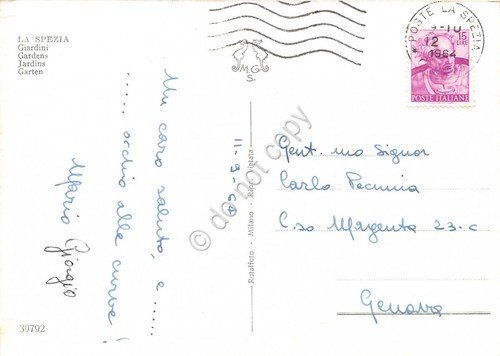 LA SPEZIA
Giardini
Gardens
Jardins
Garten
M G
S.
POSTE LA SPEZIA
-10
12
1964
15
LIRE
POSTE ITALIANE
Un caro saluto, e......
...... occhio alle curve!
Mario Giorgio
11-9-64
Gent.mo Signor
Carlo
C.so Magenta 23-C
Genova
Rotalfoto - Milano - Riprod. Vietata
39792
do not copy